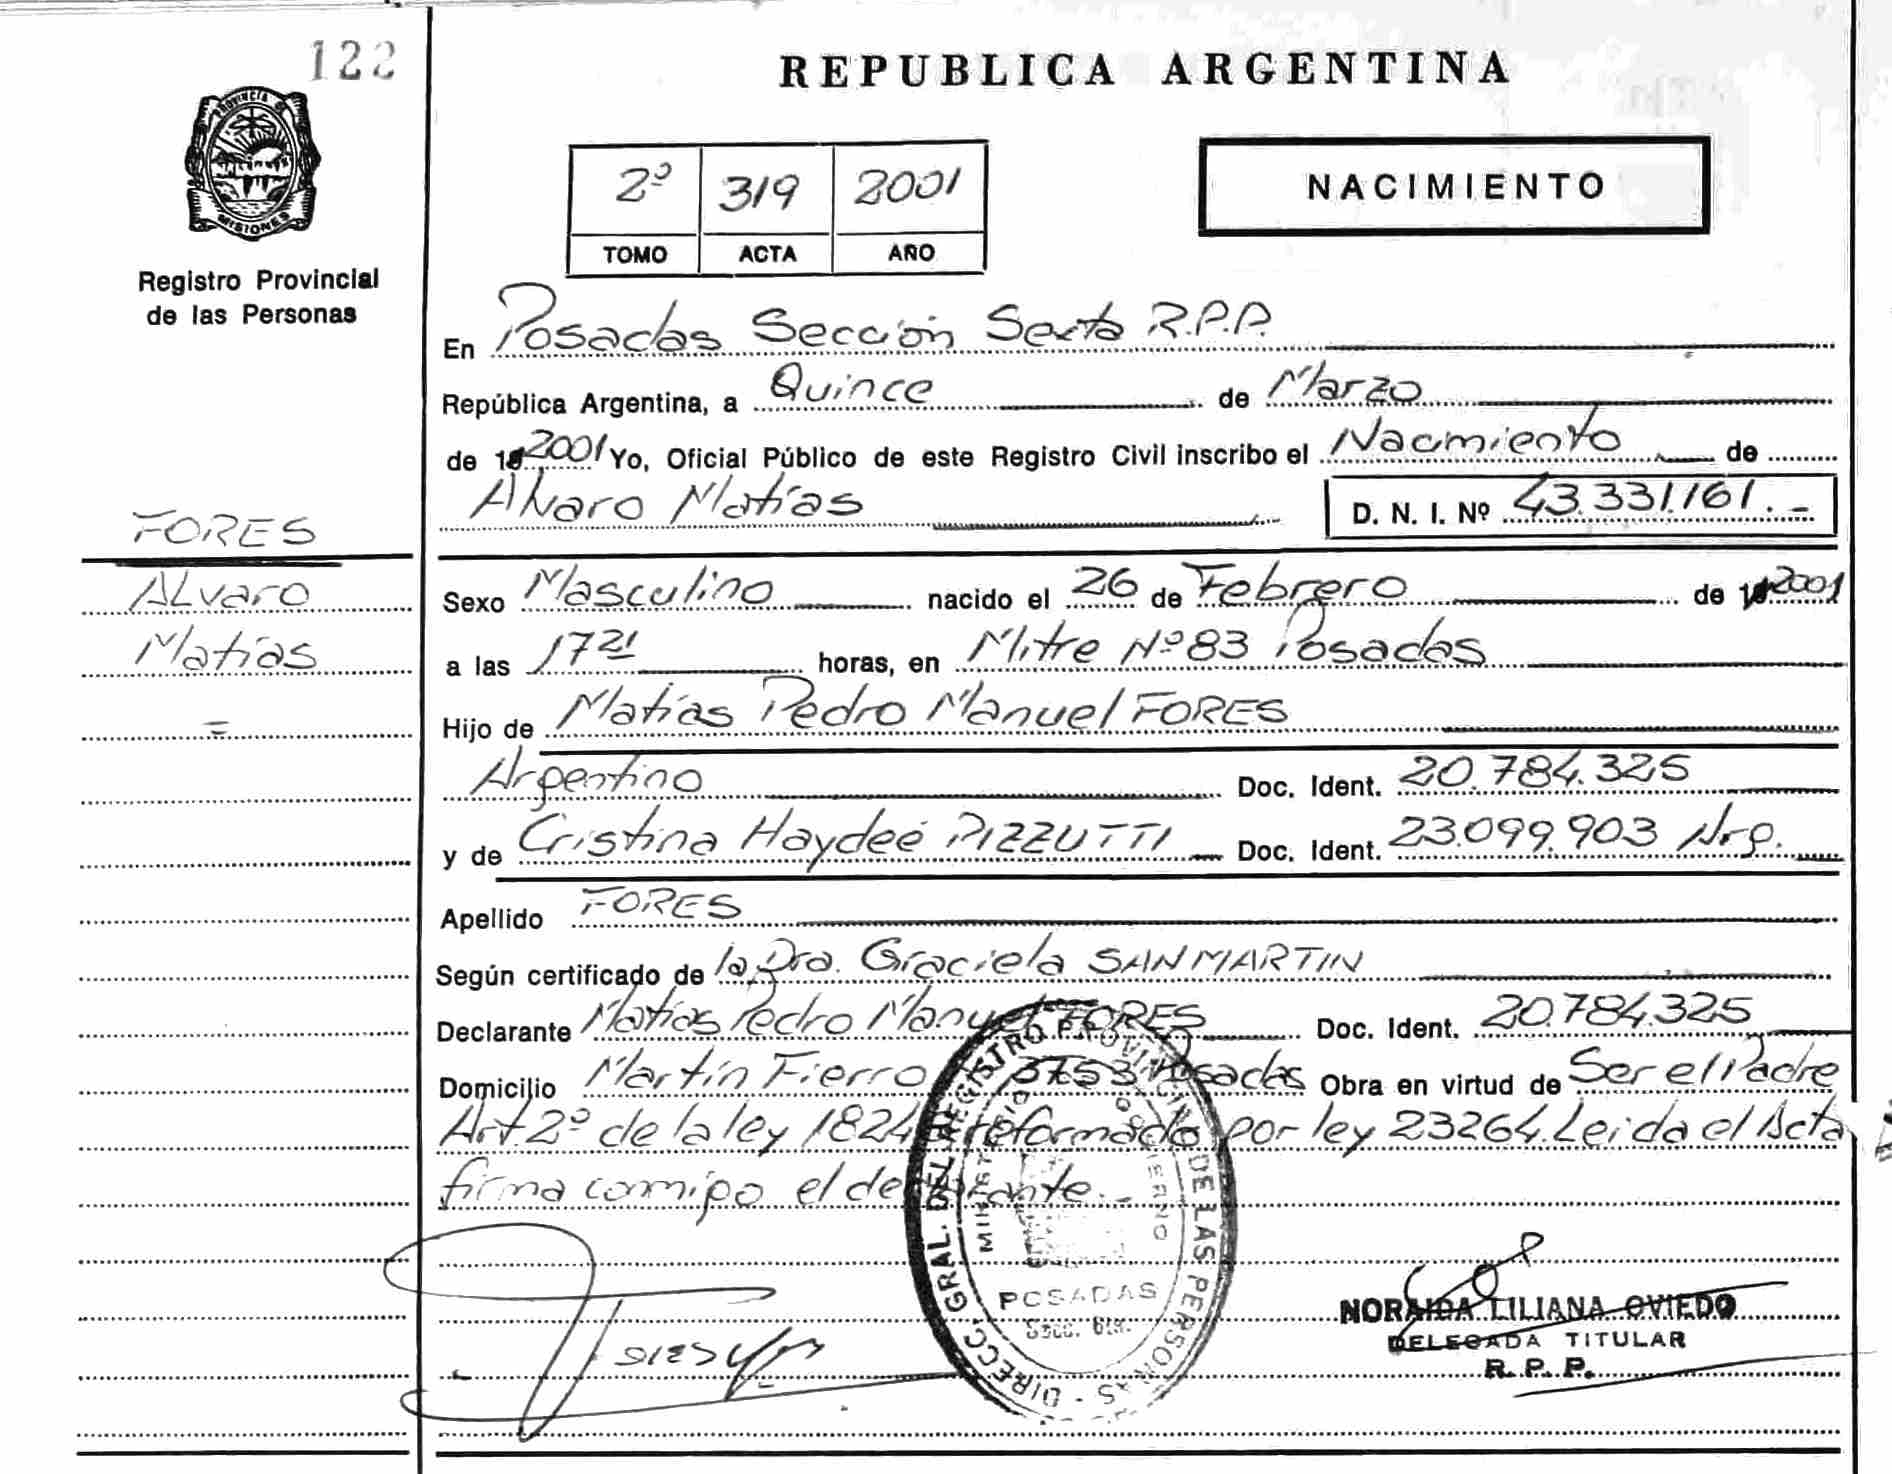 122
PROVINCIA DE
MISIONES
Registro Provincial
de las Personas
FORES
Alvaro
Matías
=
REPUBLICA ARGENTINA
2º 319 2001
TOMO ACTA AÑO
NACIMIENTO
En Posadas Sección Sexta R.P.P.
República Argentina, a Quince de Marzo
de 2001 Yo, Oficial Público de este Registro Civil inscribo el Nacimiento de
Alvaro Matías D. N. I. Nº 43.331.161.-
Sexo Masculino nacido el 26 de Febrero de 2001
a las 17 21 horas, en Mitre Nº 83 Posadas
Hijo de Matías Pedro Manuel FORES
Argentino Doc. Ident. 20.784.325
y de Cristina Haydeé PIZZUTTI Doc. Ident. 23.099.903 Arg.
Apellido FORES
Según certificado de la Dra. Graciela SANMARTIN
Declarante Matías Pedro Manuel FORES Doc. Ident. 20.784.325
Domicilio Martín Fierro 3753 Posadas Obra en virtud de Ser el Padre
Art 2º de la ley 18248 reformado por ley 23264. Leida el Acta
firma conmigo el declarante.-
DIRECC. GRAL. DEL REGISTRO PROVINCIAL DE LAS PERSONAS
MINISTERIO GOBIERNO
POSADAS
Secc. 6ta.
NORAIDA LILIANA OVIEDO
DELEGADA TITULAR
R. P. P.